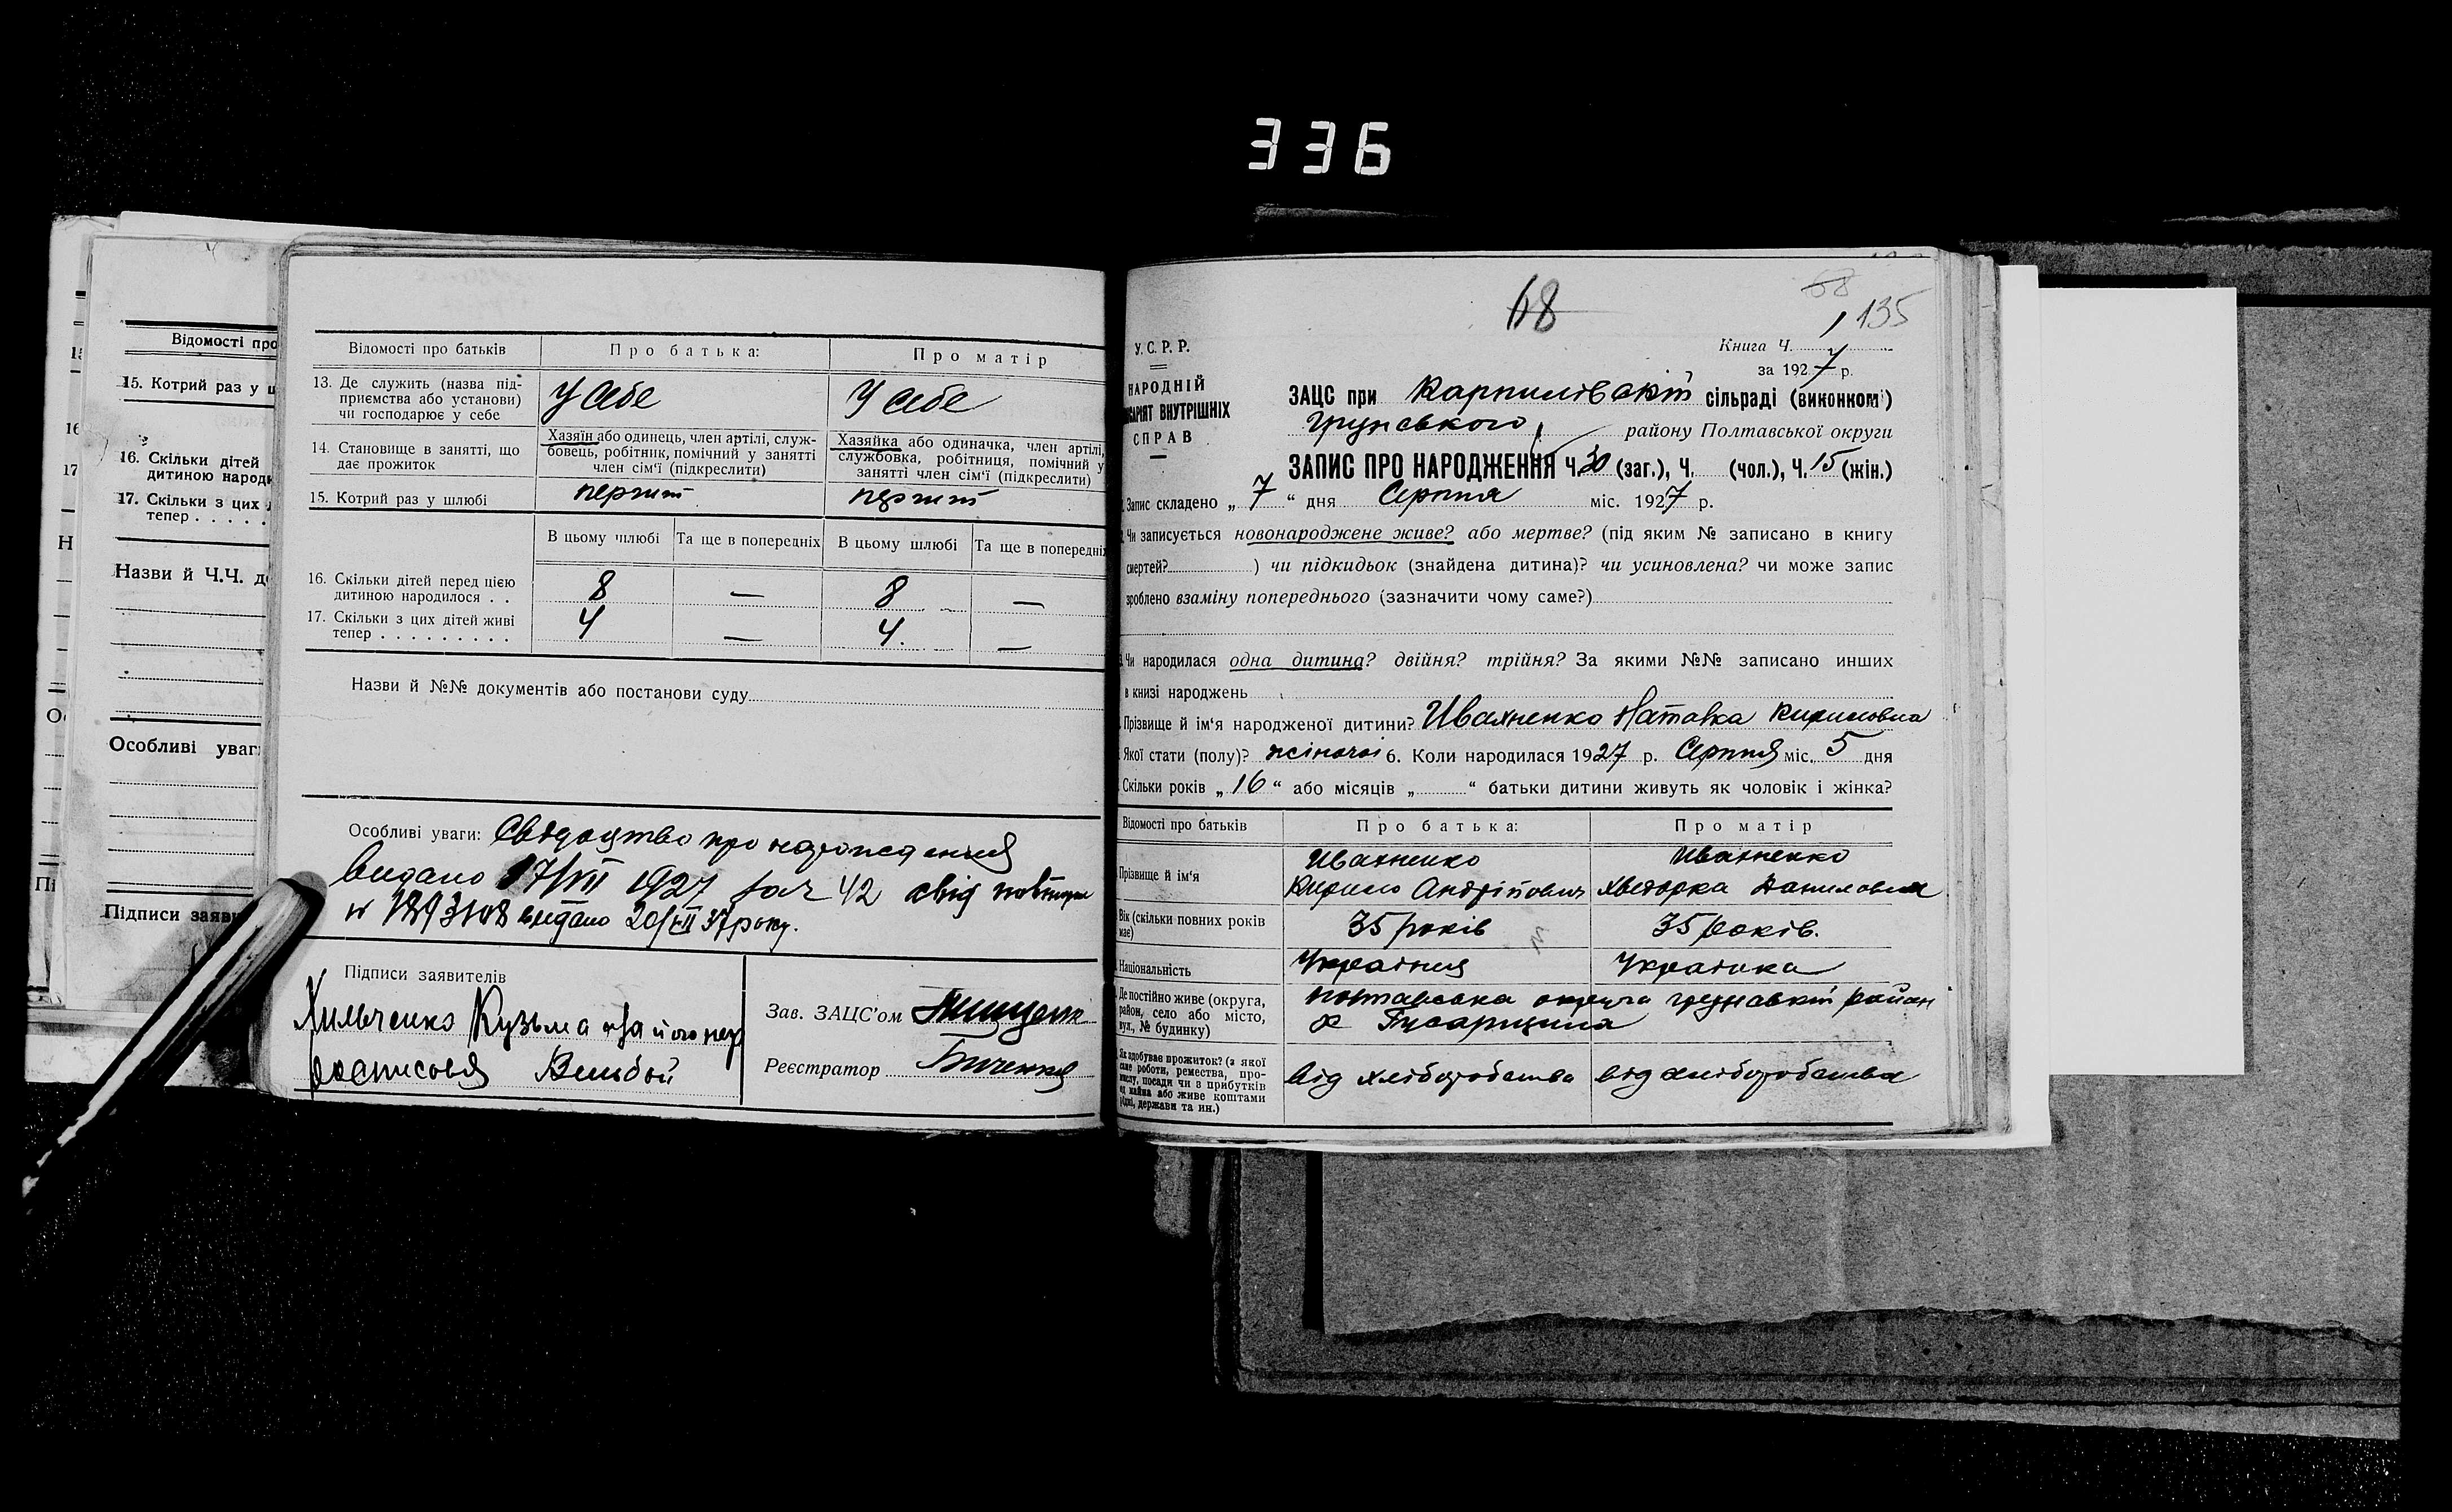 336
Відомості про
15. Котрий раз у ш
16. Скільки дітей
дитиною народи
17. Скільки з цих
тепер . . . . .
Назви й Ч.Ч. д
Особливі уваг
Підписи заяви
Відомості про батьків Про батька: Про матір
13. Де служить (назва під-
приємства або установи)
чи господарює у себе
У себе У себе
14. Становище в занятті, що
дає прожиток
Хазяїн або одинець, член артілі, служ-
бовець, робітник, помічний у занятті
член сім'ї (підкреслити)
Хазяйка або одиначка, член артілі,
службовка, робітниця, помічний у
занятті член сім'ї (підкреслити)
15. Котрий раз у шлюбі перший перший
В цьому шлюбі Та ще в попередніх В цьому шлюбі Та ще в попередніх
16. Скільки дітей перед цією
дитиною народилося . . 8 — 8 —
17. Скільки з цих дітей живі
тепер . . . . . . . . . 4 — 4. —
Назви й №№ документів або постанови суду
Особливі уваги: Свідоцтво про народження
видано 17/VIII 1927 за ч 42 свід
видано 20/VII 37 року.
Підписи заявителів
Хильченко Кузьма
росписовся
Зав. ЗАЦС'ом
Реєстратор
68
68
135
У.С.Р.Р.
НАРОДНІЙ
ВНУТРІШНІХ
СПРАВ
Книга Ч. 1
за 1927 р.
ЗАЦС при Карпилівській сільраді (виконком)
Грунського району Полтавської округи
ЗАПИС ПРО НАРОДЖЕННЯ Ч. 30 (заг.), Ч. (чол.), Ч. 15 (жін.)
Запис складено „ 7 “ дня Серпня міс. 1927 р.
Чи записується новонароджене живе? або мертве? (під яким № записано в книгу
смертей? ) чи підкидьок (знайдена дитина)? чи усиновлена? чи може запис
зроблено взаміну попереднього (зазначити чому саме?)
Чи народилася одна дитина? двійня? трійня? За якими №№ записано инших
в книзі народжень
Прізвище й ім'я народженої дитини? Ивахненко Наталка Кириловна
Якої стати (полу)? жіночої 6. Коли народилася 1927 р. Серпня міс. 5 дня
Скільки років „ 16 “ або місяців „ “ батьки дитини живуть як чоловік і жінка?
Відомості про батьків Про батька: Про матір
Прізвище й ім'я
Ивахненко
Кирило Андрійович
Ивахненко
Хведорка Даниловна
Вік (скільки повних років
має)
35 років 35 років.
Національність Українця Українка
Де постійно живе (округа,
район, село або місто,
вул., № будинку)
Полтавська округа Грунський район
х Гусарщина
Як здобуває прожиток? (з якої
саме роботи, ремества, про-
мислу, посади чи в прибутків
від майна або живе коштами
рідні, держави та ин.)
від хліборобства від хліборобства